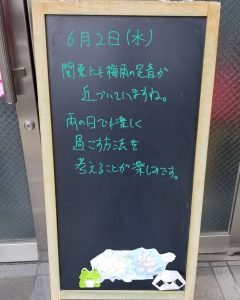 6月2日(水)
関東にも梅雨の足音が
近づいていますね。
雨の日でも楽しく
過ごす方法を
考えることが楽しみです。